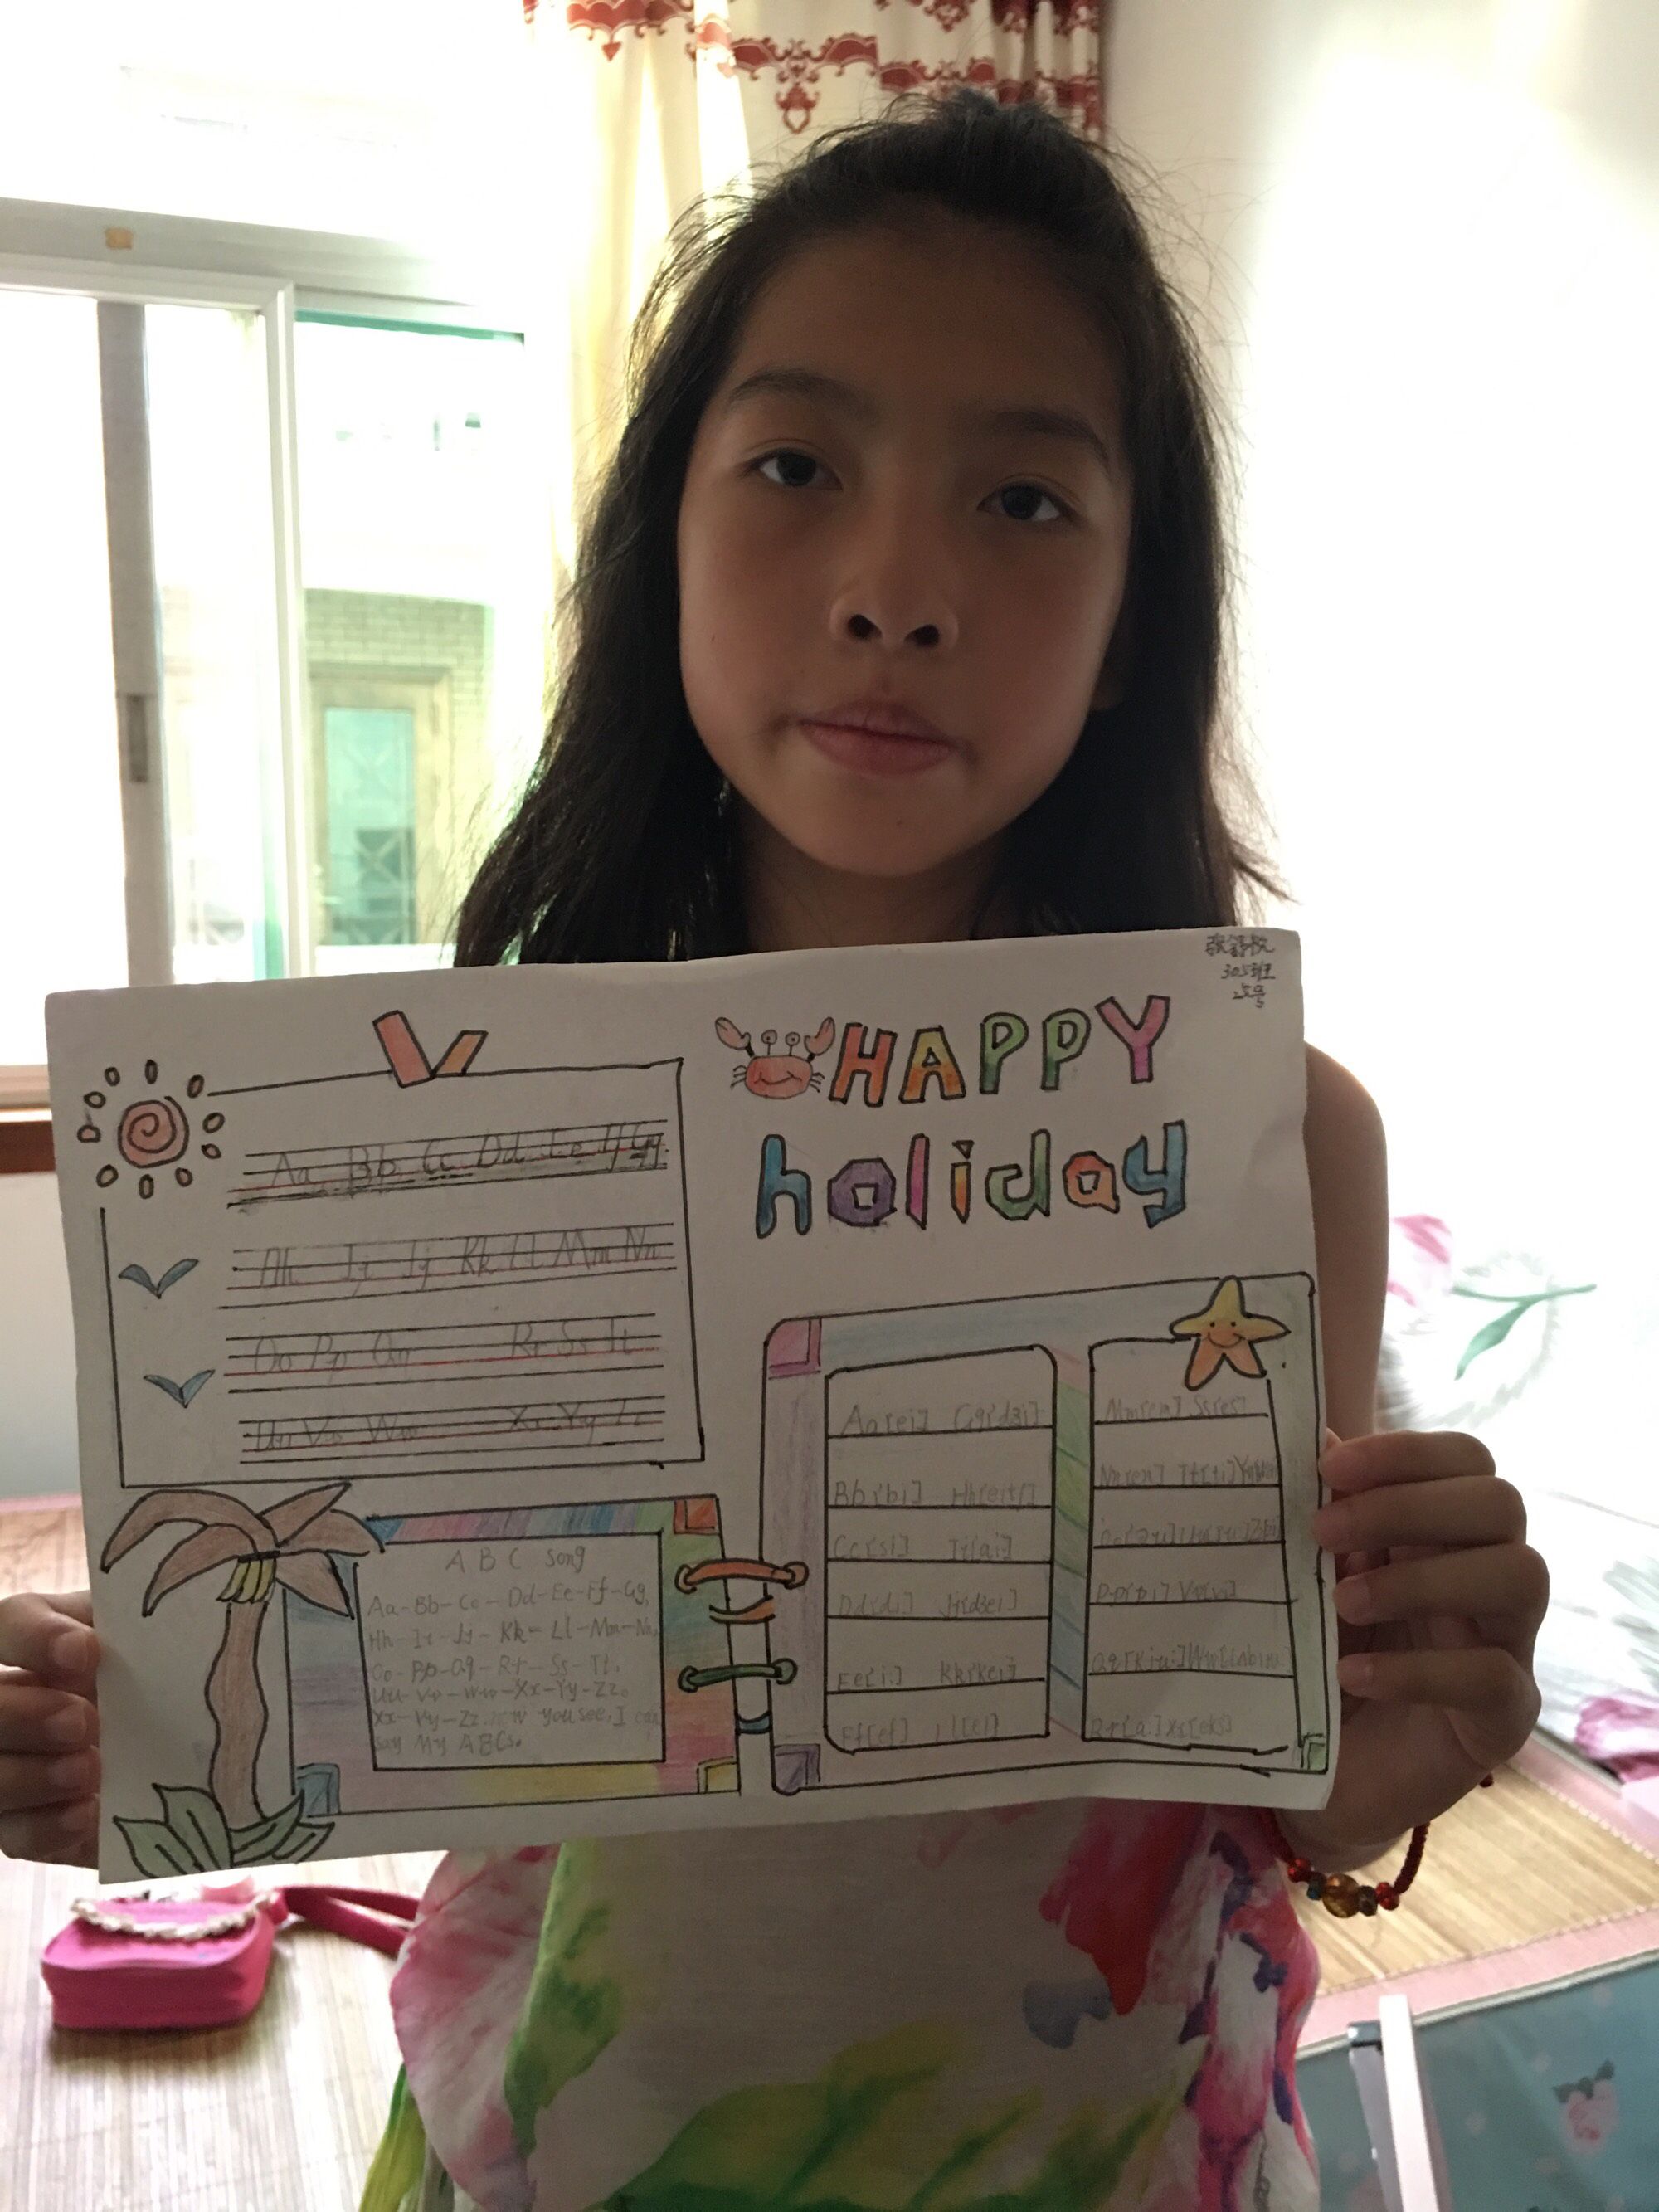 305班
25号
HAPPY
holiday
Aa Bb Cc Dd Ee Ff Gg
Hh Ii Jj Kk Ll Mm Nn
Oo Pp Qq Rr Ss Tt
Uu Vv Ww Xx Yy Zz
A B C song
Aa-Bb-Cc-Dd-Ee-Ff-Gg,
Hh-Ii-Jj-Kk-Ll-Mm-Nn,
Oo-Pp-Qq-Rr-Ss-Tt,
Uu-Vv-Ww-Xx-Yy-Zz。
Xx-Yy-Zz, now you see, I can
say My ABCs。
Aa[ei] Gg[dʒi]
Bb[bi] Hh[eitʃ]
Cc[si] Ii[ai]
Dd[di] Jj[dʒei]
Ee[i:] Kk[kei]
Ff[ef] Ll[el]
Mm[em] Ss[es]
Nn[en] Tt[ti]
Pp[pi] Vv[vi]
Qq[kju:] Ww
Rr[a] Xx[eks]